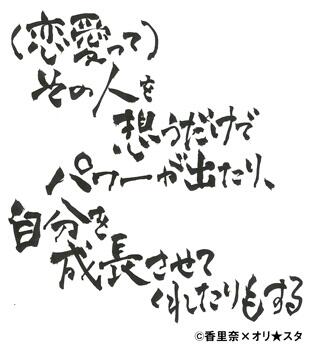 （恋愛って）
その人を
想うだけで
パワーが出たり、
自分を
成長させて
くれたりもする
©香里奈×オリ★スタ